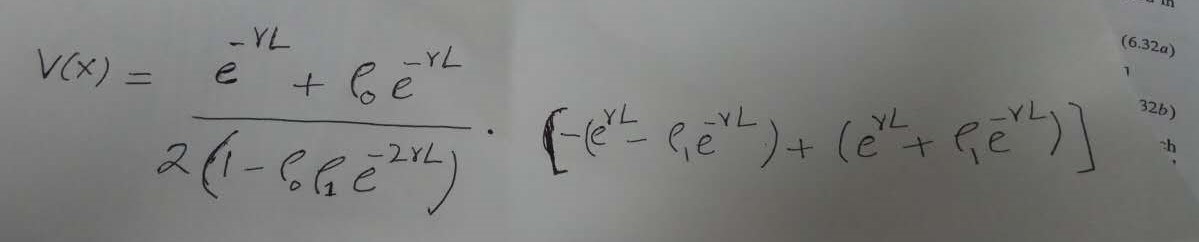 V(x) = \frac{e^{-γL} + ρ_0 e^{-γL}}{2(1 - ρ_0 ρ_1 e^{-2γL})} · [-(e^{γL} - ρ_1 e^{-γL}) + (e^{γL} + ρ_1 e^{-γL})]
(6.32a)
32b)